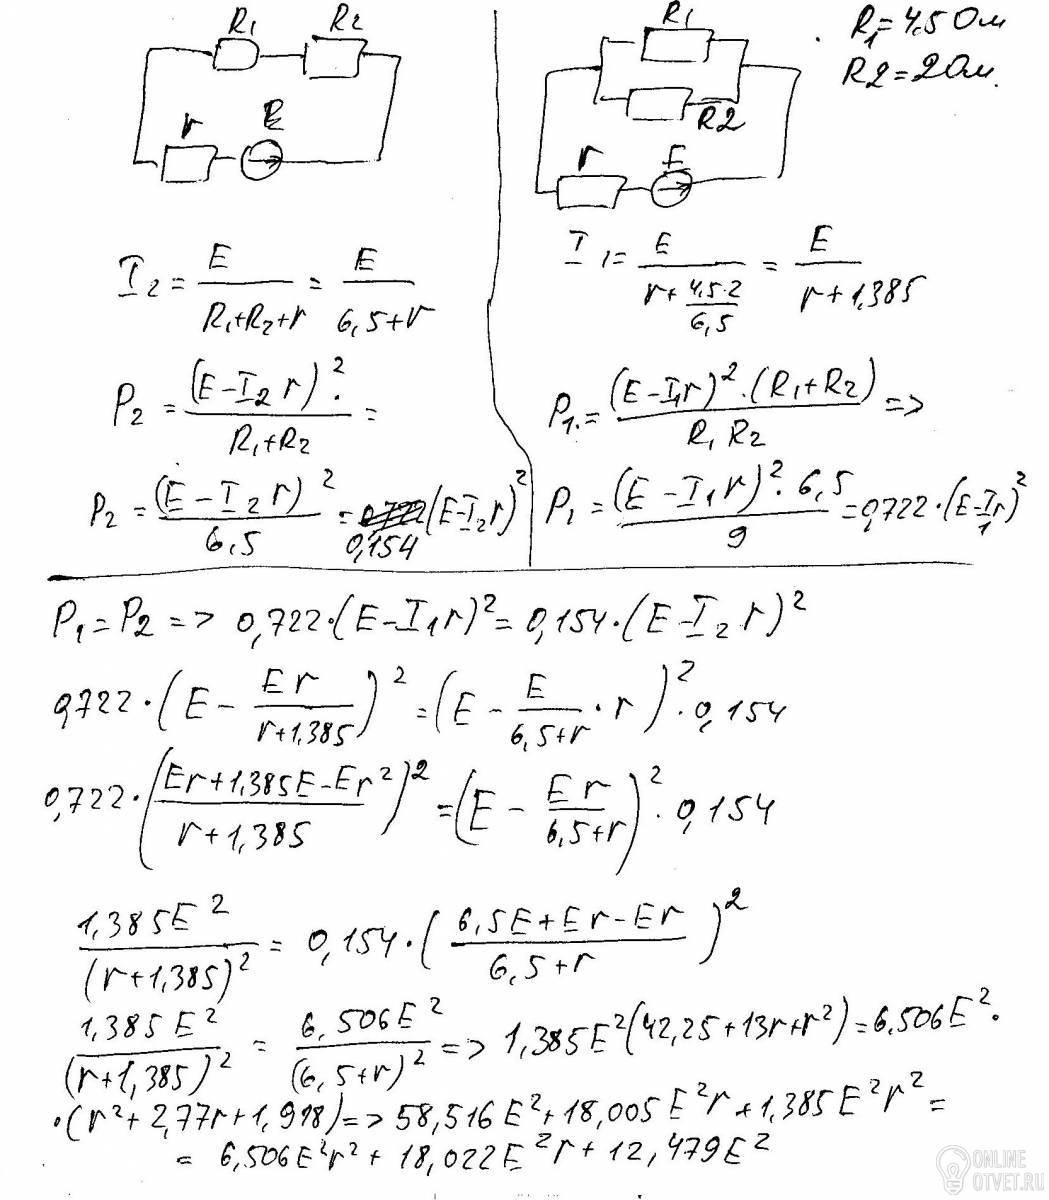 R1 R2
r E
R1
R2
r E
R1=4,5 Ом
R2=2 Ом.
I2 = E/(R1+R2+r) = E/(6,5+r)
P2 = (E-I2 r)^2 · /(R1+R2) =
P2 = (E-I2 r)^2/6,5 = 0,154 (E-I2 r)^2
I1 = E/(r + 4,5·2/6,5) = E/(r+1,385)
P1. = (E-I1r)^2 · (R1+R2)/(R1 R2) =>
P1 = (E-I1r)^2 · 6,5/9 = 0,722·(E-I1r)^2
P1=P2 => 0,722·(E-I1r)^2 = 0,154·(E-I2 r)^2
0,722·(E - Er/(r+1,385))^2 = (E - E/(6,5+r) · r)^2 · 0,154
0,722·((Er+1,385E-Er^2)/(r+1,385))^2 = (E - Er/(6,5+r))^2 · 0,154
1,385E^2/(r+1,385)^2 = 0,154·((6,5E+Er-Er)/(6,5+r))^2
1,385E^2/(r+1,385)^2 = 6,506E^2/(6,5+r)^2 => 1,385E^2(42,25+13r+r^2)=6,506E^2·
·(r^2+2,77r+1,918) => 58,516E^2+18,005E^2r+1,385E^2r^2=
= 6,506E^2r^2+18,022E^2r+12,479E^2
ONLINE
OTVET.RU